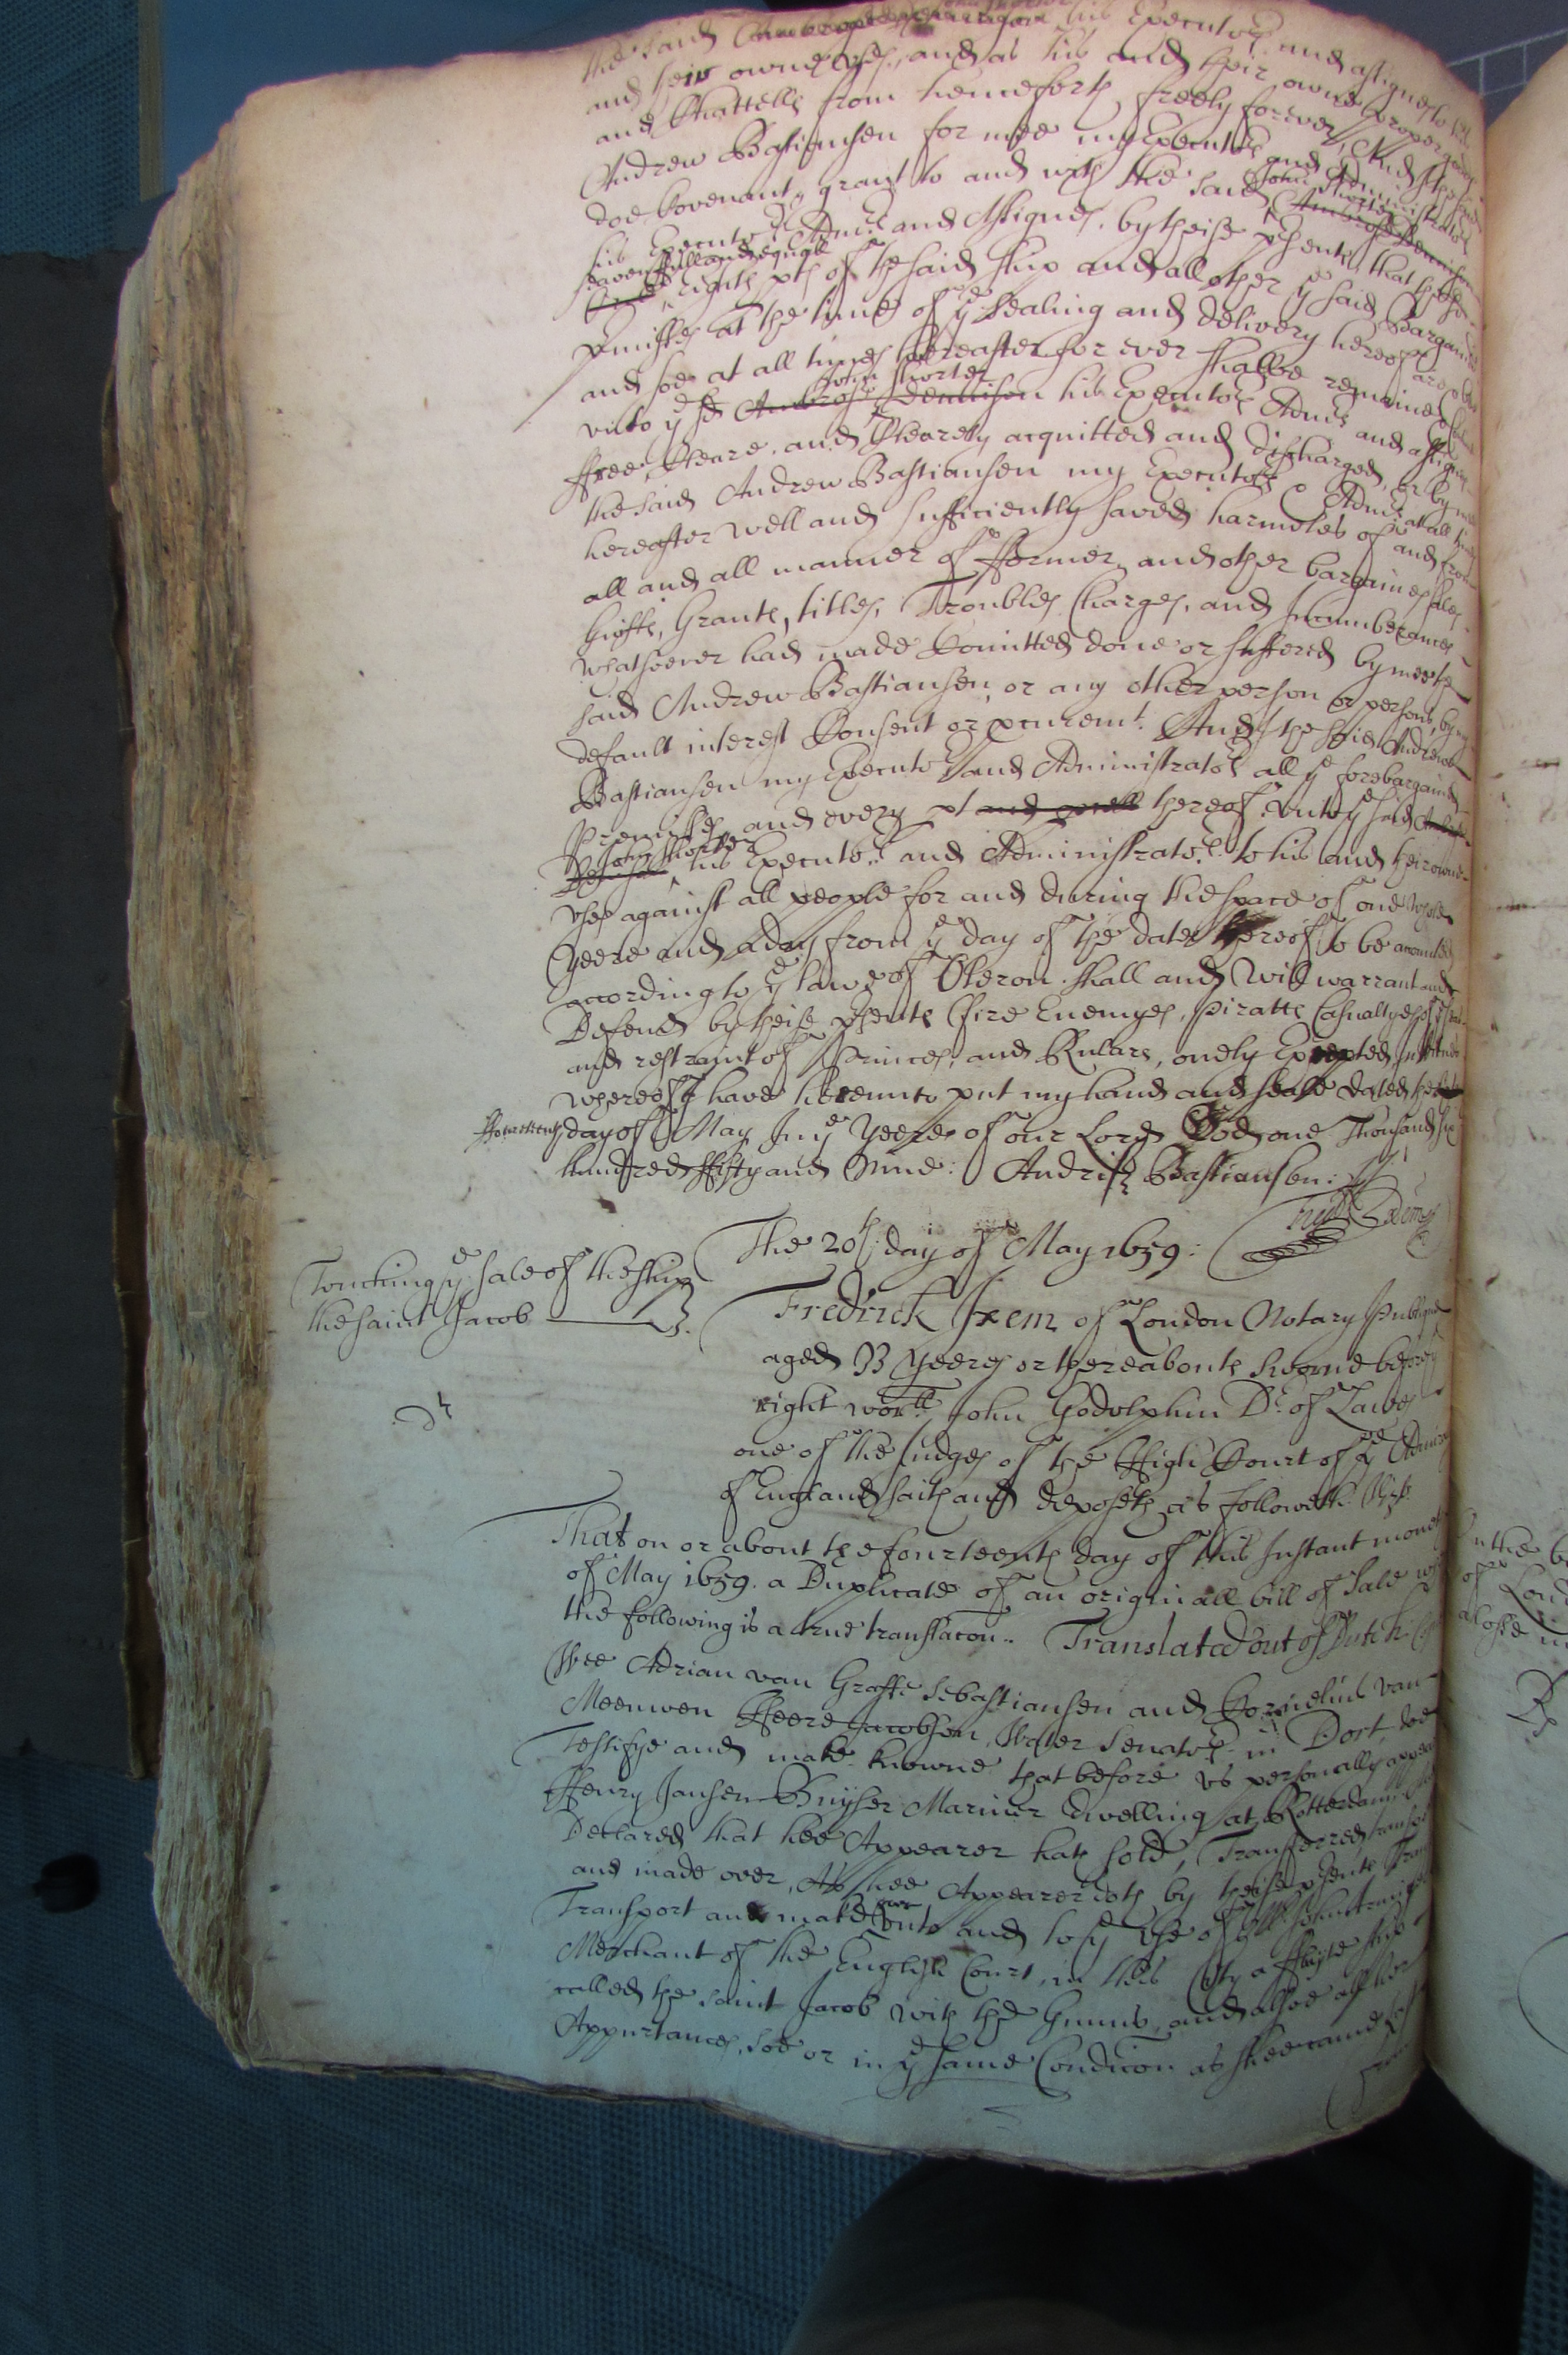 the said his Executors and assignes to his
and their owne uses, and as his and their owne proper goods
and Chattells from henceforth freely forever, And I the said
Andrew Bastiansen for mee my Executors and Administrators
doe Covenant, grant to and with the said John Shorter
his Executors Admrs and Assignes. by theise psents that the
seaven full and equall Eights pts of the said ship and all other ye said Bargained
pmisses at the time of ye sealing and delivery hereof are
and soe at all times hereafter for ever shallbe remaine
unto ye sd Ambrose Dennison John Shorter his Executors Admrs and assignes
ffree, Cleare. and Clearely acquitted and discharged, or by mee
the said Andrew Bastiansen my Executors Admrs at all times
hereafter well and sufficiently saved harmeles of and from
all and all manner of fformer and other bargaines sales
Guifts, Grants, titles, Troubles Charges, and Incumberances
whatsoever had made Comitted done or suffered by mee the
said Andrew Bastiansen or any other person or persons, by my
default interest Consent or pcuremt. And I the said Andrew
Bastiansen my Executors and Administrators all ye forebargained
Premisses and every pt and pcell thereof unto ye said
John Shorter his Executors and Administrators. to his and their owne
uses against all people for and during the space of one whole
yeere and a day from ye day of the date hereof to be accounted
according to ye lawe of Oleron. shall and will warrant and
Defend by theise psents (fire Enemyes, piratts Casualtyes of ye seas
and restraint of Princes, and Rulars, onely Excepted, In witnes
whereof I have hereunto put my hand and seale dated the
ffourteenth day of May In ye Yeere of our Lord God one Thousand six
hundred ffifty and Nine: Andrisz Bastiansen:
The 20th: day of May 1659:
Touching ye sale of the ship
the saint Jacob
Fredrick Ixem of London Notary Publique
aged 33 yeeres or thereabouts sworne before ye
right worll. John Godolphin Dr. of Lawes
one of the Judges of the High Court of ye Admiralty
of England saith and deposeth as followeth. Vizt.
That on or about the fourteenth day of this Instant moneth
of May 1659. a Duplicate of an originall bill of Sale
the following is a true translacon.. Translated out of Dutch
Wee Adrian van Graffe Sebastiansen and Cornelius van
Meenwen Heere Jacobsen, Water Senators in Dort, doe
Testifye and make knowne that before us personally appeared
Henry Jansen Buyser Mariner dwelling at Rotterdam
Declared that hee Appearer hath sold, Transferred transported
and made over, As hee Appearer doth by theise psents
Transport and make over unto and to ye use of
Merchant of the English Court, in this Citty a fflyte ship
called the saint Jacob with the Gunns, and alsoe all her
Appurtances, soe or in ye same Condicon as shee came